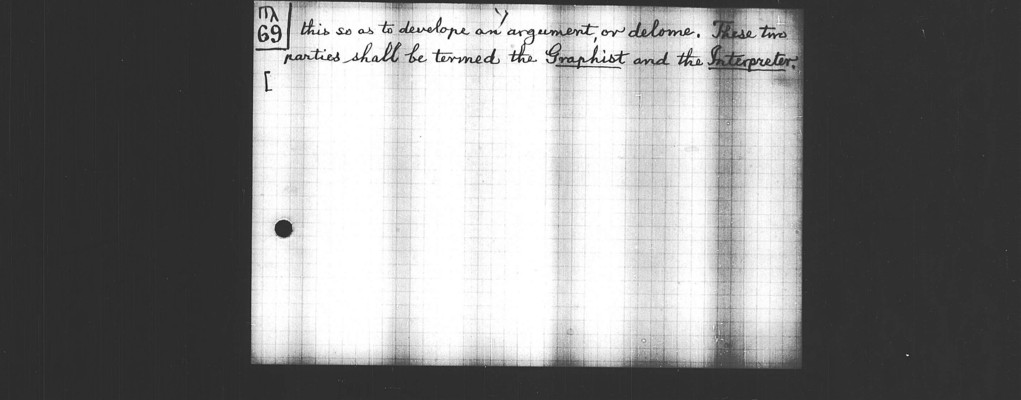 69 this so as to develope an argument, or delome. These two
parties shall be termed the Graphist and the Interpreter.
[